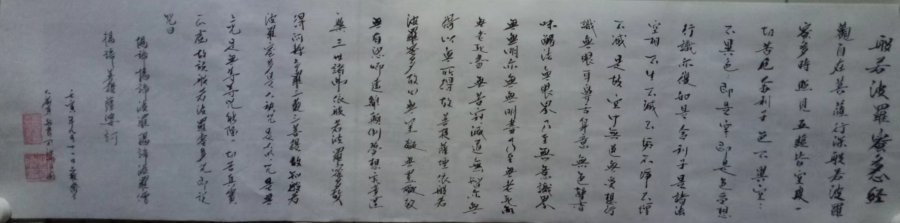 般若波羅蜜多心經
觀自在菩薩行深般若波羅
蜜多時照見五蘊皆空度一
切苦厄舍利子色不異空空
不異色色即是空空即是色受想
行識亦復如是舍利子是諸法
空相不生不滅不垢不淨不增
不減是故空中無色無受想行
識無眼耳鼻舌身意無色聲香
味觸法無眼界乃至無意識界
無無明亦無無明盡乃至無老死亦
無老死盡無苦集滅道無智亦無
得以無所得故菩提薩埵依般若
波羅蜜多故心無罣礙無罣礙故
無有恐怖遠離顛倒夢想究竟涅
槃三世諸佛依般若波羅蜜多故
得阿耨多羅三藐三菩提故知般若
波羅蜜多是大神咒是大明咒是無
上咒是無等等咒能除一切苦真實
不虛故說般若波羅蜜多咒即說
咒曰
揭諦揭諦波羅揭諦波羅僧
揭諦菩提薩婆訶